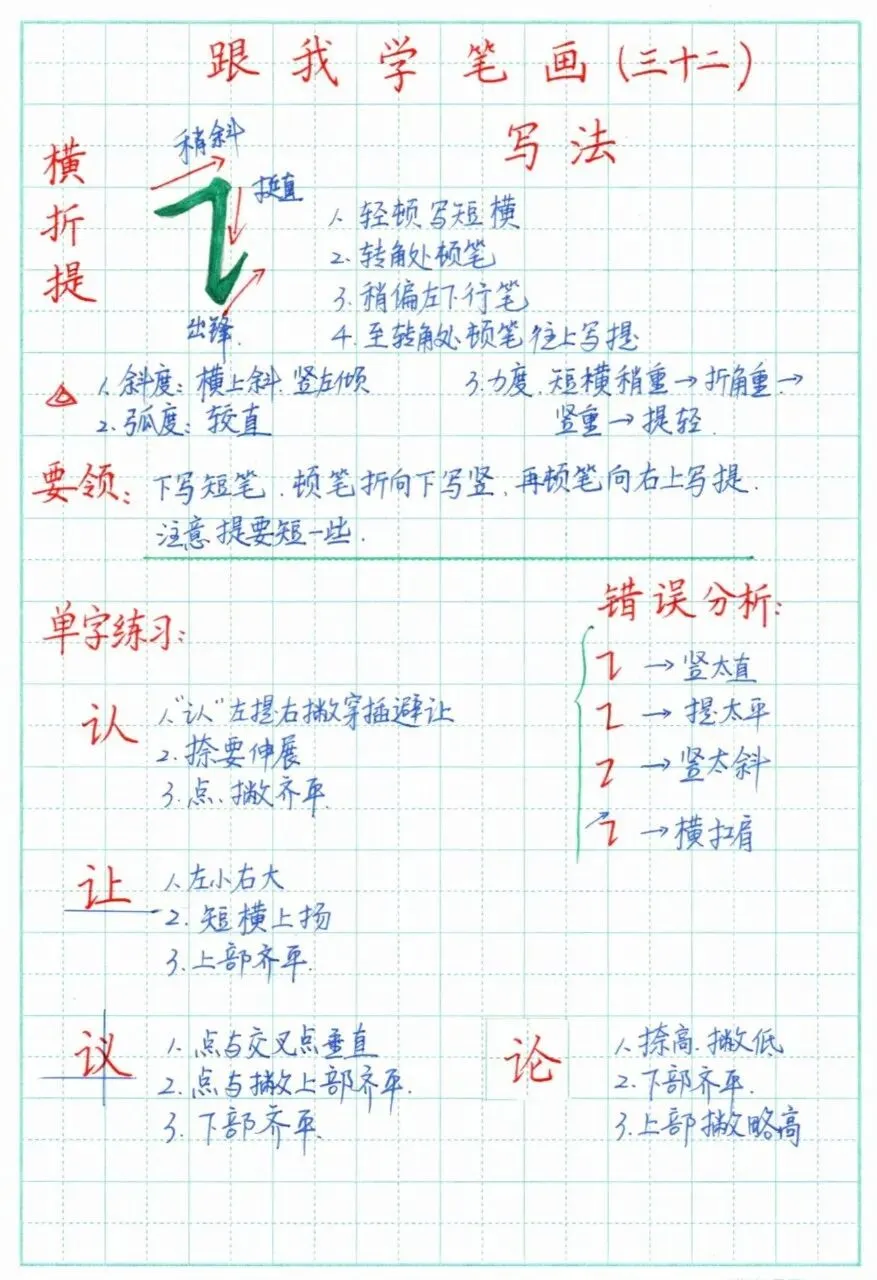 跟我学笔画(三十二)
横折提
稍斜
挺直
出锋.
写法
1. 轻顿写短横
2. 转角处顿笔
3. 稍偏左下行笔
4. 至转角处顿笔往上写提
1. 斜度: 横上斜. 竖左倾
2. 弧度: 较直
3. 力度. 短横稍重→折角重→
竖重→提轻.
要领: 下写短笔. 顿笔折向下写竖, 再顿笔向右上写提.
注意提要短一些.
单字练习:
认
1. "认"左提右撇穿插避让
2. 捺要伸展
3. 点. 撇齐平.
让
1. 左小右大
2. 短横上扬
3. 上部齐平.
错误分析:
→竖太直
→提太平
→竖太斜
→横扛肩
议
1. 点与交叉点垂直
2. 点与撇上部齐平.
3. 下部齐平.
论
1. 捺高. 撇低
2. 下部齐平.
3. 上部撇略高